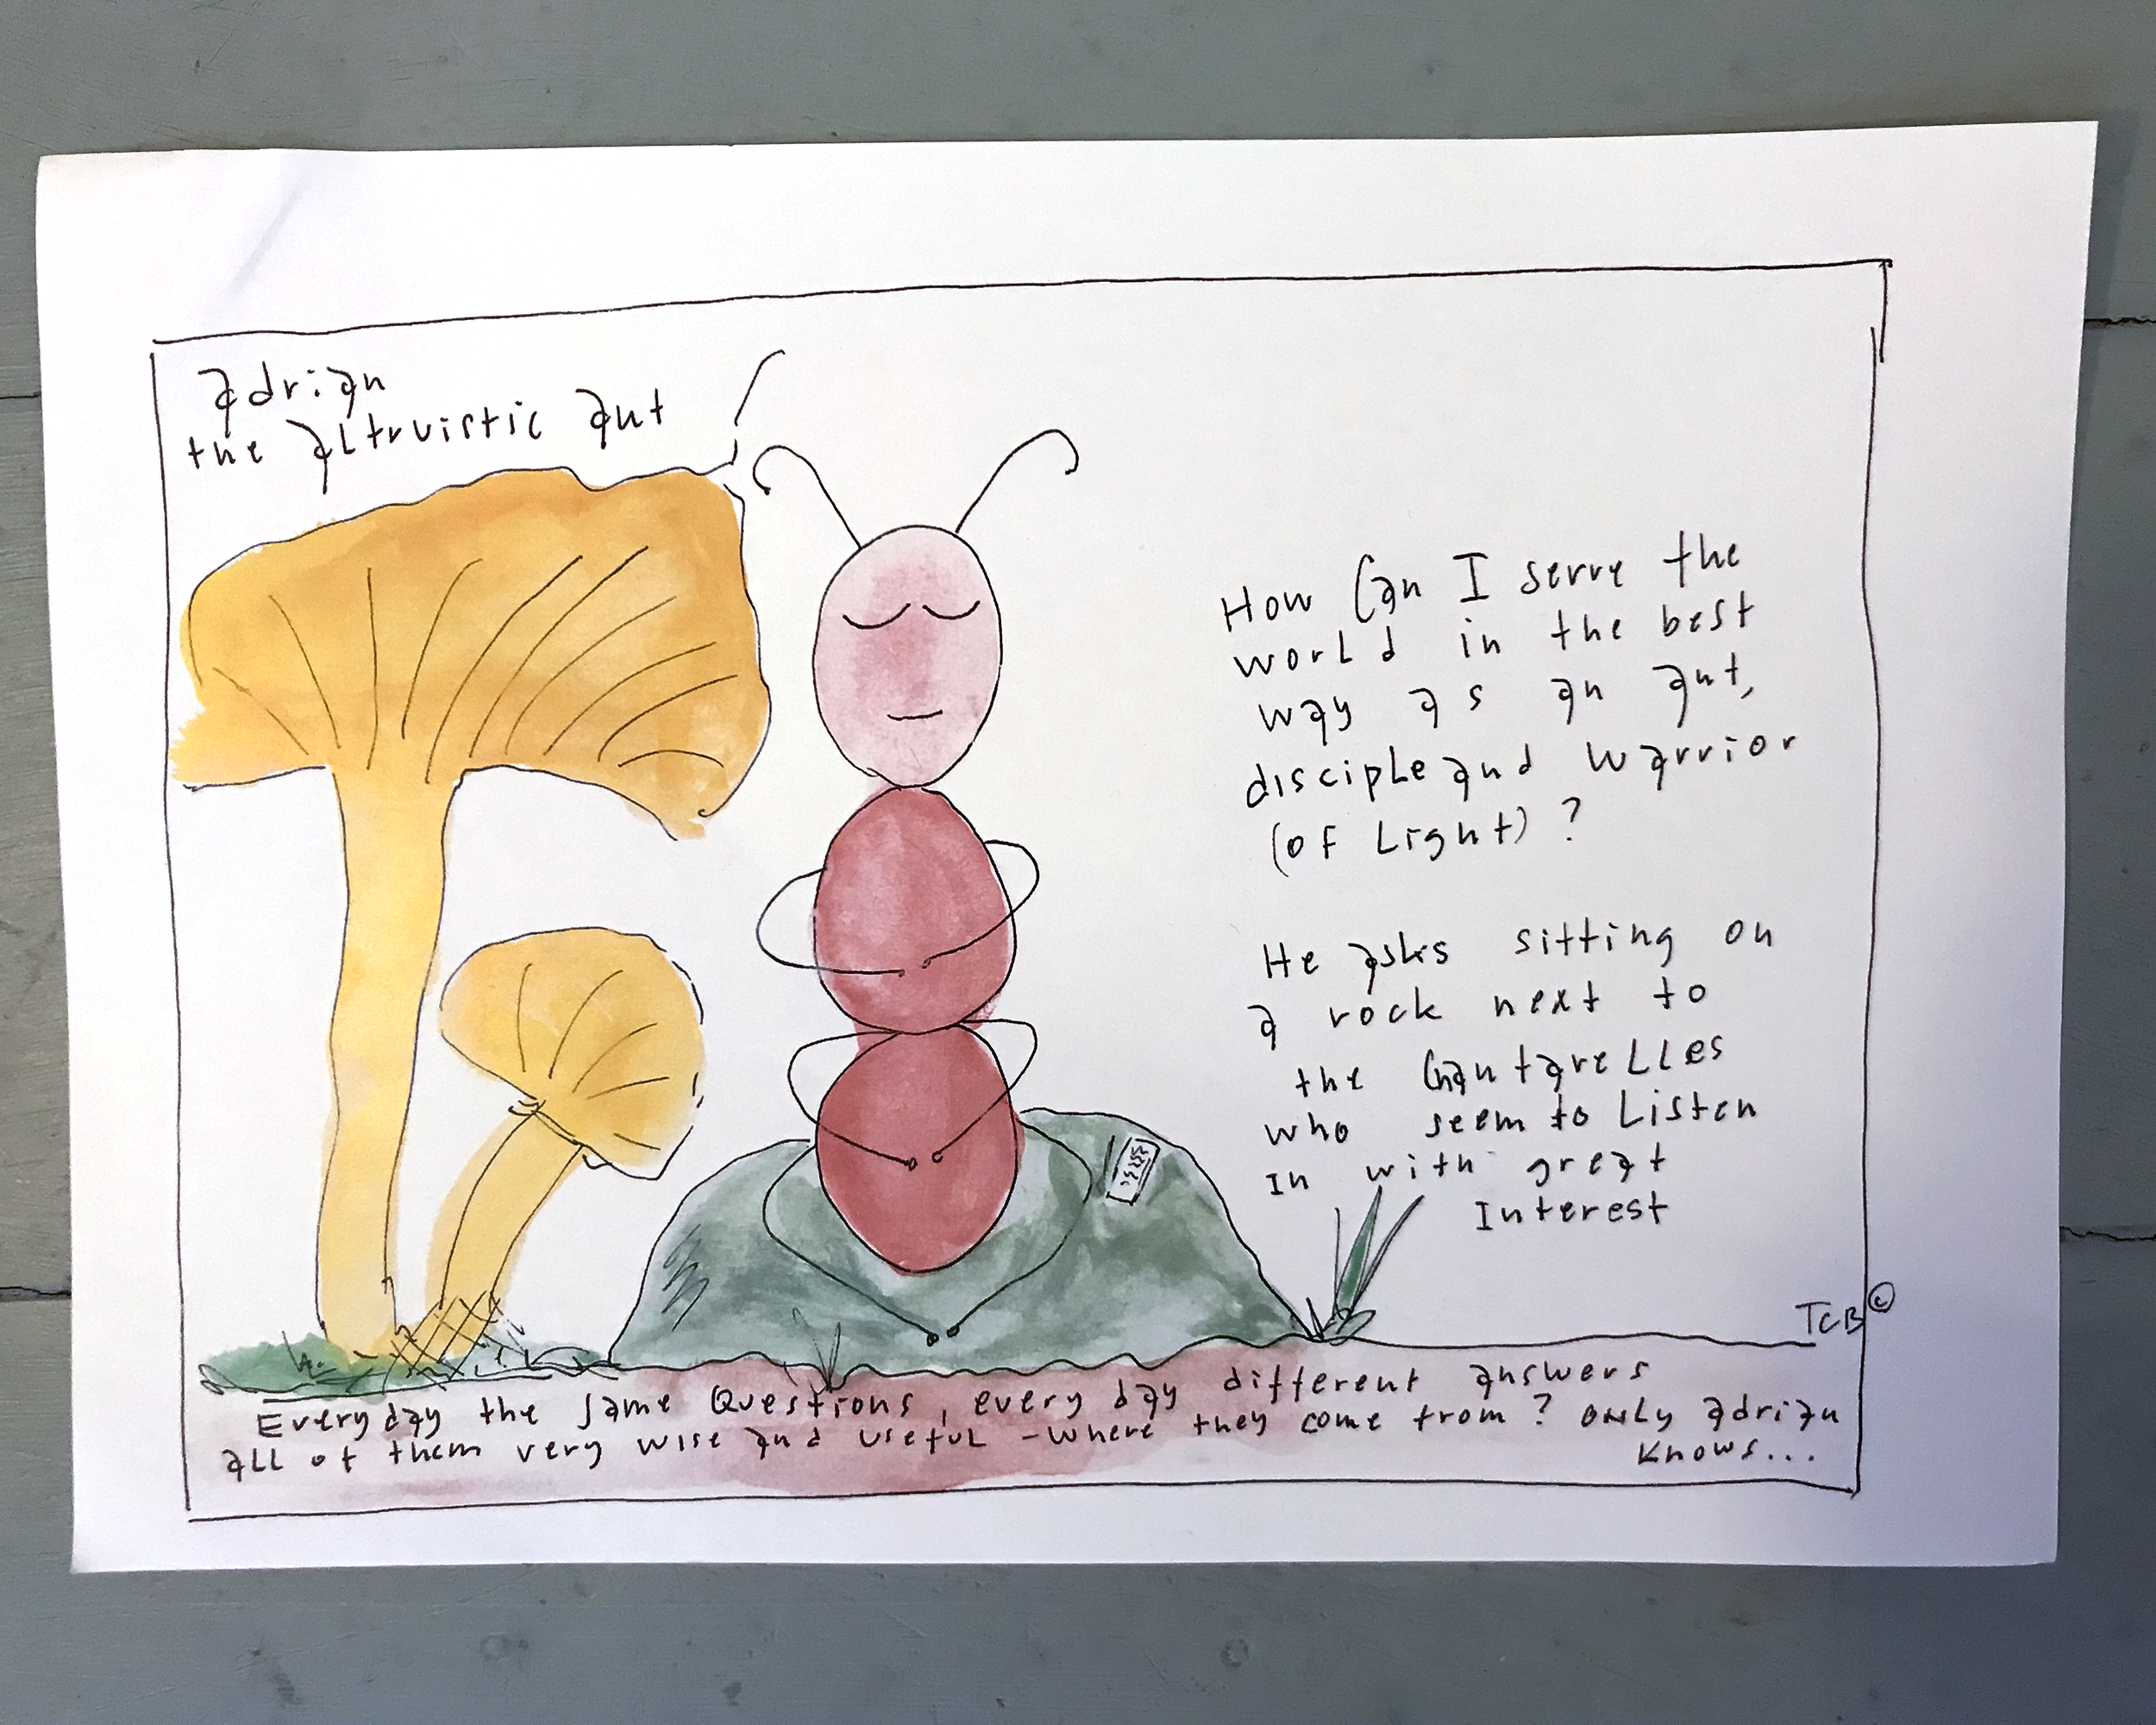 adrian
the altruistic ant
How Can I serve the
world in the best
way as an ant,
disciple and warrior
(of Light) ?
He asks sitting on
a rock next to
the Chantarelles
who seem to Listen
In with great
Interest
TCB ©
Every day the same Questions, every day different answers
all of them very wise and useful - where they come from ? only adrian
knows...